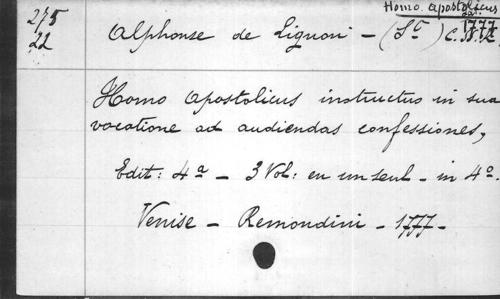 Homo apostolicus
ed. 1777
275
22
Alphonse de Liguori - (St) C.SS.R.
Homo apostolicus instructus in sua
vocatione ad audiendas confessiones,
Edit: 4a - 3 Vol: en un seul - in 4o.
Venise - Remondini - 1777 -